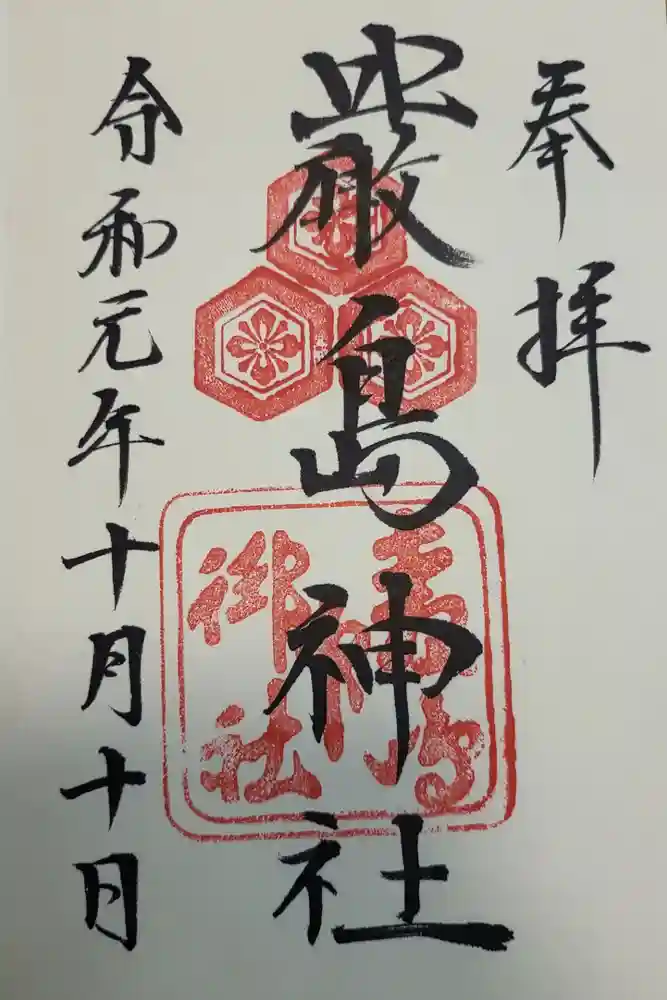 奉拝
嚴島神社
令和元年十月十日
御社